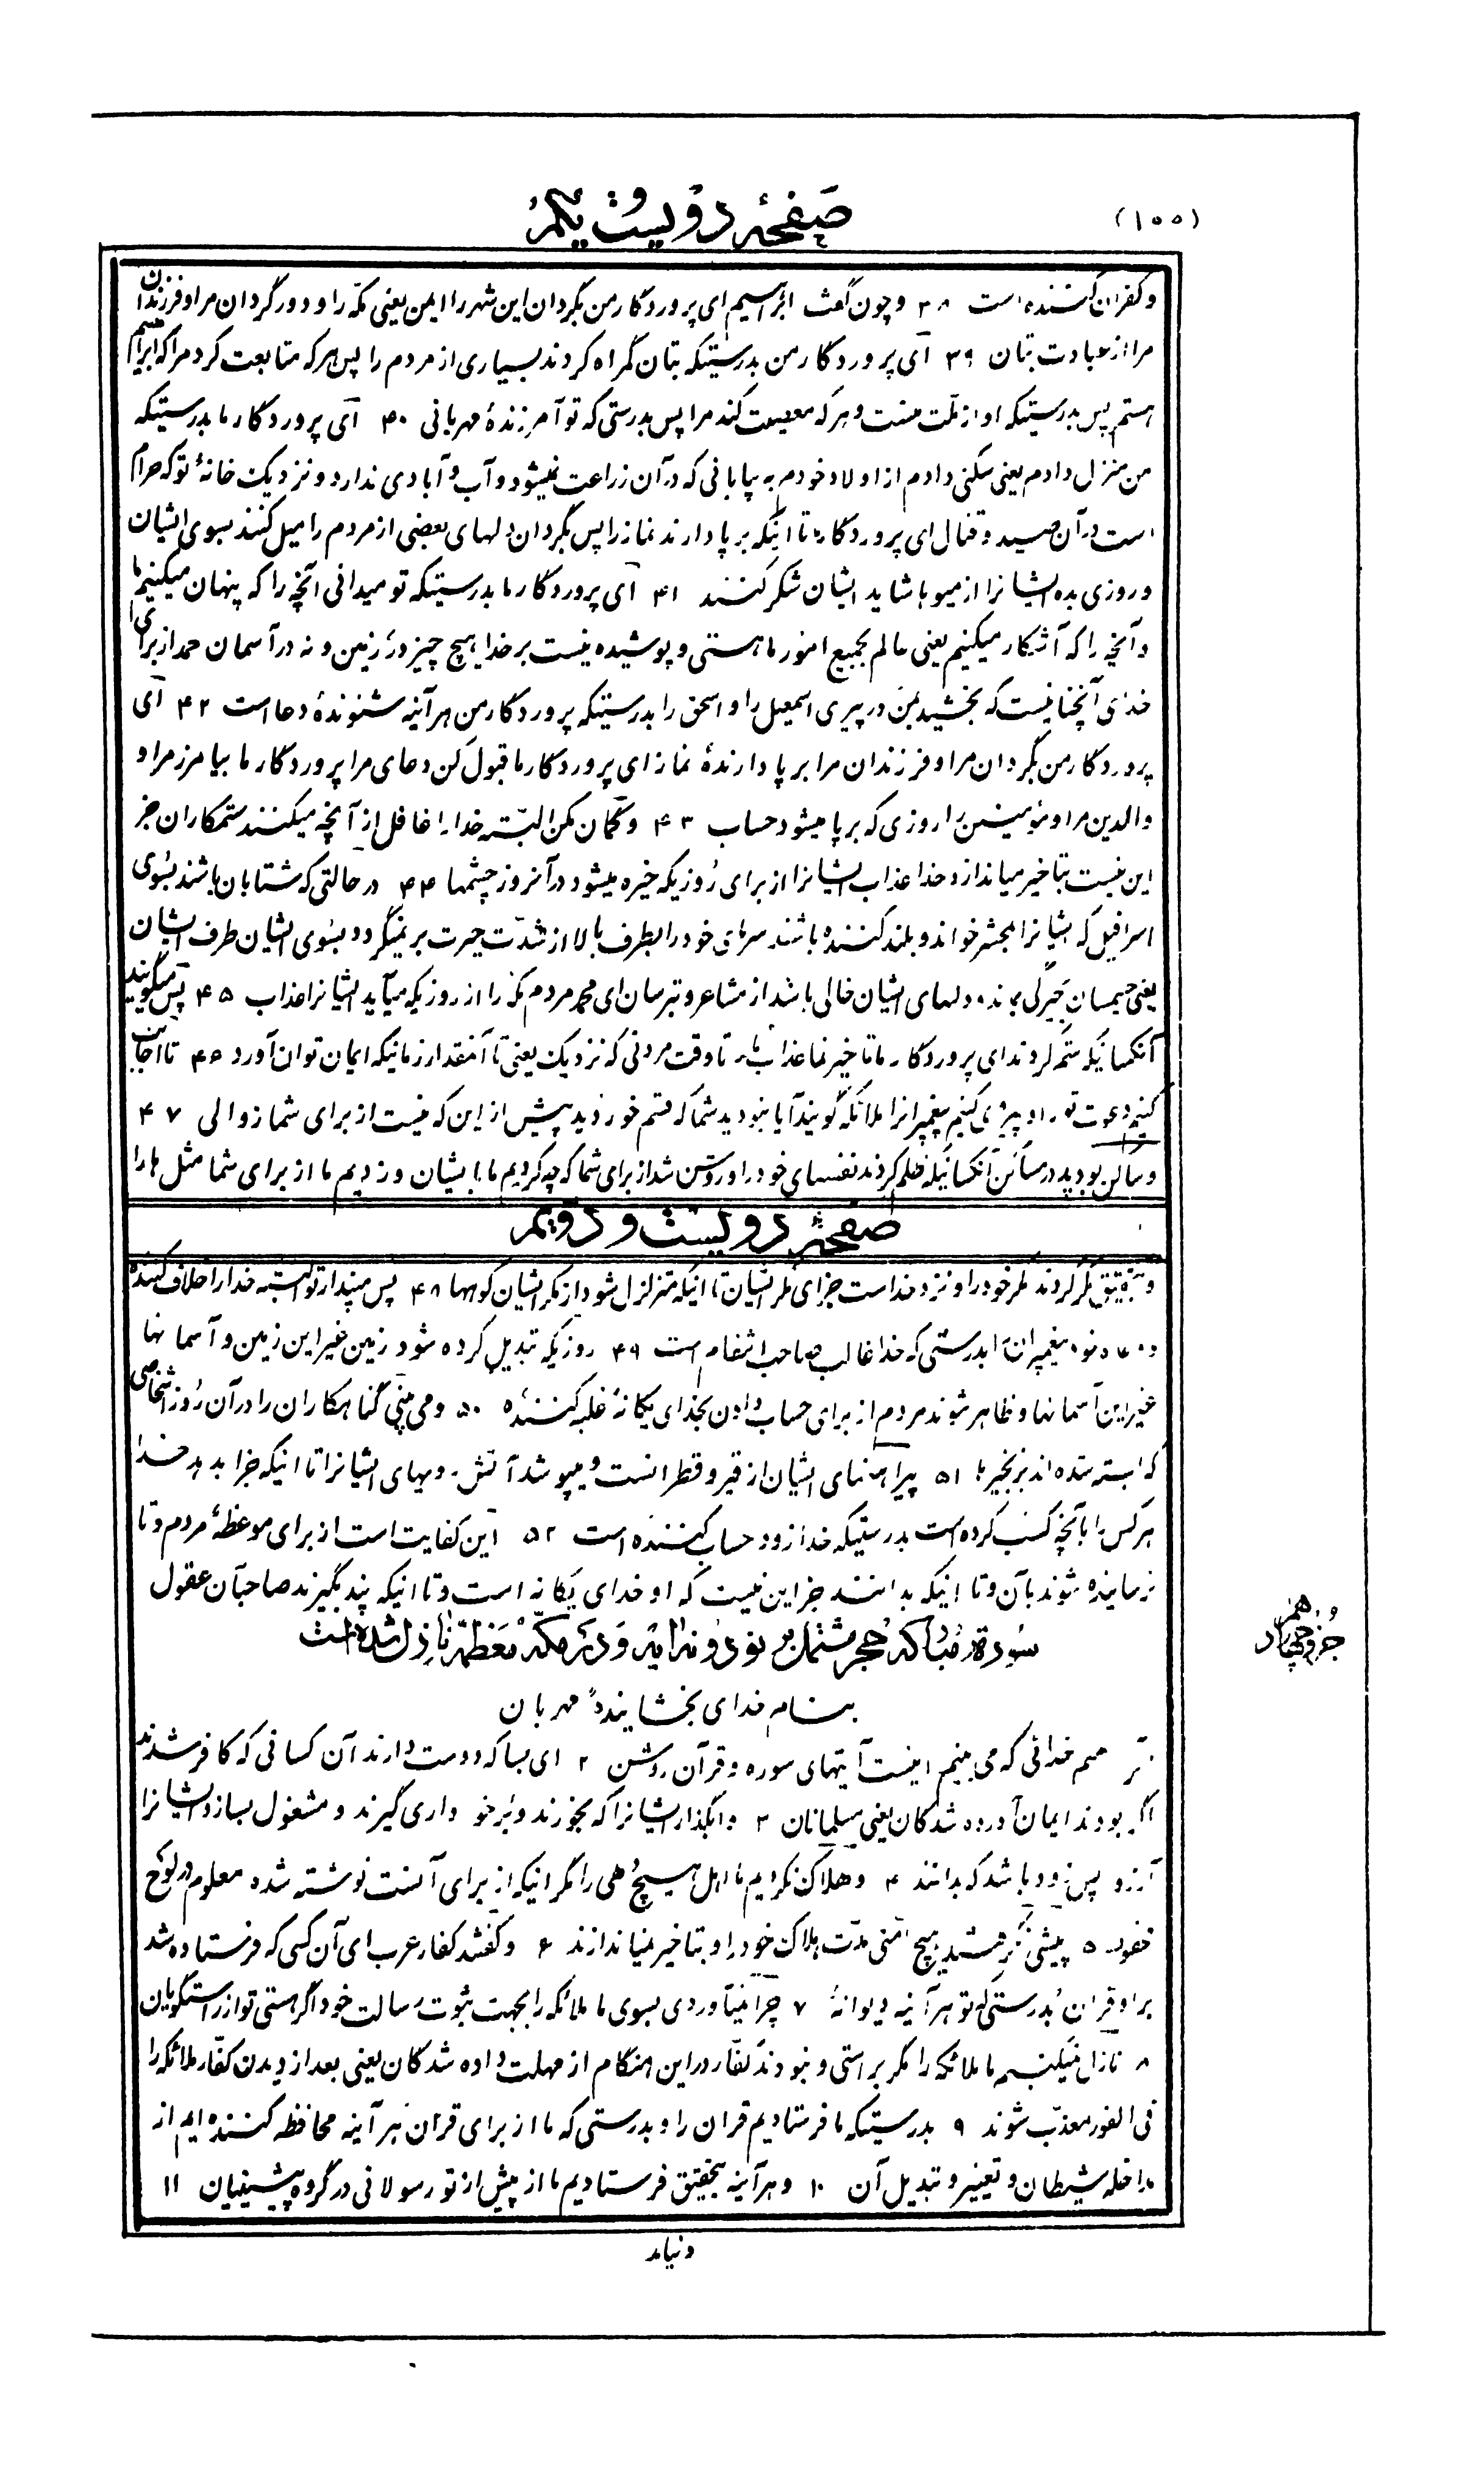 (۱۰۰)
صفحهٔ دویست و یکم
و کفران کننده است ۳۸ و چون گفت ابراهیم ای پروردگار من بگردان این شهر را ایمن یعنی مکّه را و دور گردان مرا و فرزندان
مرا از عبادت بتان ۳۹ آی پروردگار من بدرستیکه بتان گمراه کردند بسیاری از مردم را پس هر که متابعت کرد مرا که ابراهیم
هستم پس بدرستیکه او از ملّت منست و هر که معصیت کند مرا پس بدرستی که تو آمرزندهٔ مهربانی ۴۰ آی پروردگار ما بدرستیکه
من منزل دادم یعنی سکنی دادم از اولاد خودم به بیابانی که در آن زراعت نمیشود و آب و آبادی ندارد و نزدیک خانهٔ تو که حرام
است در آن صید و قتال ای پروردگار ما تا اینکه برپا دارند نماز را پس بگردان دلهای بعضی از مردم را میل کنند بسوی ایشان
و روزی بده ایشانرا از میوها شاید ایشان شکر کنند ۴۱ آی پروردگار ما بدرستیکه تو میدانی آنچه را که پنهان میکنیم ما
و آنچه را که آشکار میکنیم یعنی عالم بجمیع امور ما هستی و پوشیده نیست بر خدا هیچ چیز در زمین و نه در آسمان حمد از برای
خدای آنچنانیست که بخشید بمن در پیری اسمعیل را و اسحق را بدرستیکه پروردگار من هر آینه شنوندهٔ دعا است ۴۲ آی
پروردگار من بگردان مرا و فرزندان مرا برپا دارندهٔ نماز ای پروردگار ما قبول کن دعای مرا پروردگار ما بیامرز مرا و
والدین مرا و مؤمنین را روزی که برپا میشود حساب ۴۳ و گمان مکن البتّه خدا را غافل از آنچه میکنند ستمکاران جز
این نیست بتاخیر میاندازد خدا عذاب ایشانرا از برای روزیکه خیره میشود در آنروز چشمها ۴۴ در حالتی که شتابان باشند بسوی
اسرافیل که ایشانرا بمحشر خواند و بلند کننده باشند سرهای خود را بطرف بالا از شدّت حیرت بر نمیگردد بسوی ایشان طرف ایشان
یعنی چشمشان بماند و دلهای ایشان خالی باشد از مشاعر و بترسان ای محمد مردم مکّه را از روزیکه میآید ایشانرا عذاب ۴۵ پس میگویند
آنکسانیکه ستم کردند ای پروردگار ما تاخیر نما عذاب ما را تا وقت مردنی که نزدیک یعنی تا آنمقدار زمانیکه ایمان توان آورد ۴۶ تا اجابت
کنیم دعوت تو را و پیروی کنیم پیغمبرانرا ملائکه گویند آیا نبودید شما که قسم خوردید پیش از این که نیست از برای شما زوالی ۴۷
و ساکن بودید در مساکن آنکسانیکه ظلم کردند نفسهای خود را و روشن شد از برای شما که چه کردیم ما بایشان و زدیم ما از برای شما مثل ها را
صفحهٔ دویست و دویم
و بتحقیق مکر کردند مکر خود را و نزد خداست جزای مکر ایشان تا اینکه متزلزل شود از مکر ایشان کوهها ۴۸ پس مپندار تو البته خدا را خلاف کنندهٔ
وعده خود پیغمبرانرا بدرستی که خدا غالب صاحب انتقام است ۴۹ روزیکه تبدیل کرده شود زمین غیر این زمین و آسمانها
غیر این آسمانها و ظاهر شوند مردم از برای حساب دادن بخدای یگانهٔ غلبه کننده ۵۰ و می بینی گناهکاران را در آن روز اشخاصی
که بسته شده اند بزنجیرها ۵۱ پیراهنهای ایشان از قیر و قطرانست و میپوشد آتش رویهای ایشانرا تا اینکه جزا بدهد خدا
هر کس را بآنچه کسب کرده است بدرستیکه خدا زود حساب کننده است ۵۲ این کفایت است از برای موعظهٔ مردم و تا
ترسانیده شوند بآن و تا اینکه بدانند جز این نیست که او خدای یگانه است و تا اینکه پند بگیرند صاحبان عقول
سورهٔ مبارکه حجر مشتمل بر نود و نه آیه و در مکّه معظّمه نازل شده است
بنام خدای بخشایندهٔ مهربان
منم خدائی که می بینم اینست آیتهای سوره و قرآن روشن ۲ ای بسا که دوست دارند آن کسانی که کافر شدند
اگر بودند ایمان آورده شدگان یعنی مسلمانان ۳ وابگذار ایشانرا که بخورند و برخورداری گیرند و مشغول بسازد ایشانرا
آرزو پس زود باشد که بدانند ۴ و هلاک نکردیم ما اهل هیچ دهی را مگر اینکه از برای آنست نوشته شده معلوم در لوح
محفوظ ۵ پیشی نگرفتند هیچ امّتی مدّت هلاک خود را و بتاخیر نمیاندازند ۶ و گفتند کفار عرب ای آن کسی که فرستاده شد
بر او قرآن بدرستی که تو هر آینه دیوانهٔ ۷ چرا نمیآوردی بسوی ما ملائکه را بجهت ثبوت رسالت خود اگر هستی تو از راستگویان
۸ نازل نمیکنیم ما ملائکه را مگر براستی و نبودند کفّار در این هنگام از مهلت داده شدگان یعنی بعد از دیدن کفّار ملائکه را
فی الفور معذّب شوند ۹ بدرستیکه ما فرستادیم قرآن را و بدرستی که ما از برای قرآن هر آینه محافظه کننده ایم از
مداخله شیطان و تغییر و تبدیل آن ۱۰ و هر آینه بتحقیق فرستادیم ما از پیش از تو رسولانی در گروه پیشینیان ۱۱
و نیامد
جزو چهاردهم